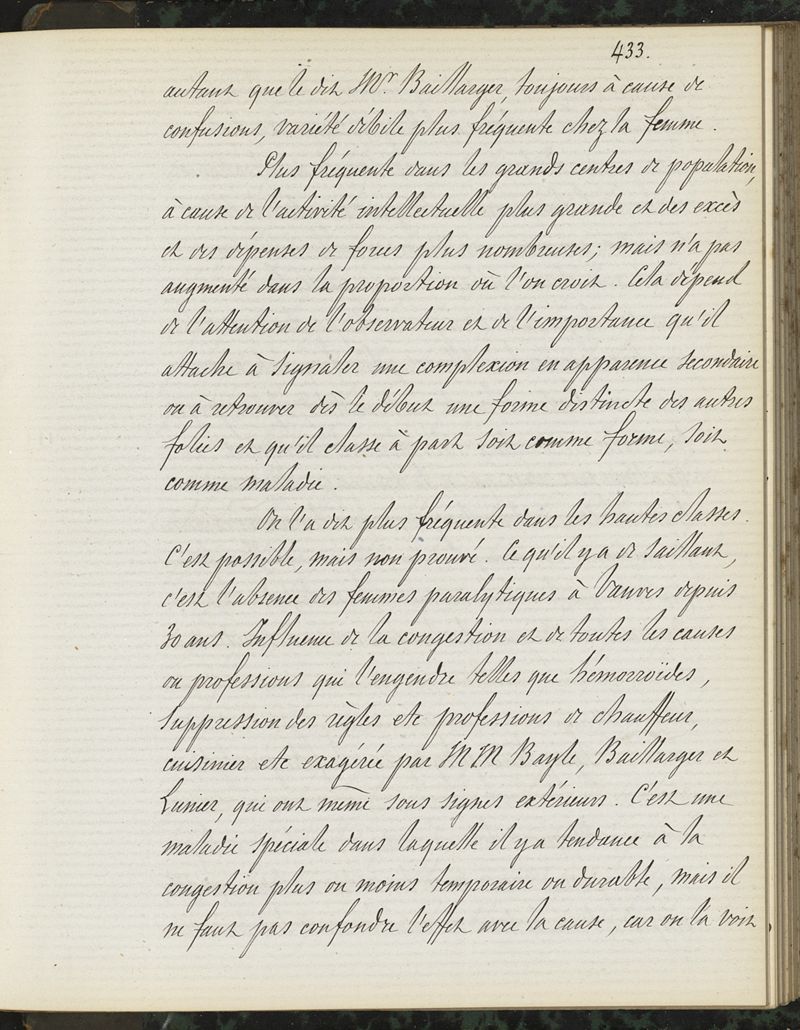 433.
autant que le dit Mr. Baillarger, toujours à cause de
confusions, variété débile plus fréquente chez la femme.
Plus fréquente dans les grands centres de population,
à cause de l'activité intellectuelle plus grande et des excès
et des dépenses de forces plus nombreuses; mais n'a pas
augmenté dans la proportion où l'on croit. Cela dépend
de l'attention de l'observateur et de l'importance qu'il
attache à signaler une complexion en apparence secondaire
ou à retrouver dès le début une forme distincte des autres
folies et qu'il classe à part soit comme forme, soit
comme maladie.
On l'a dit plus fréquente dans les hautes classes.
C'est possible, mais non prouvé. Ce qu'il y a de saillant,
c'est l'absence des femmes paralytiques à Vanves depuis
30 ans. Influence de la congestion et de toutes les causes
ou professions qui l'engendre telles que hémorroïdes,
suppression des règles etc professions de chauffeur,
cuisinier etc exagérée par MM Bayle, Baillarger et
Lunier, qui ont même sous signes extérieurs. C'est une
maladie spéciale dans laquelle il y a tendance à la
congestion plus ou moins temporaire ou durable, mais il
ne faut pas confondre l'effet avec la cause, car on la voit